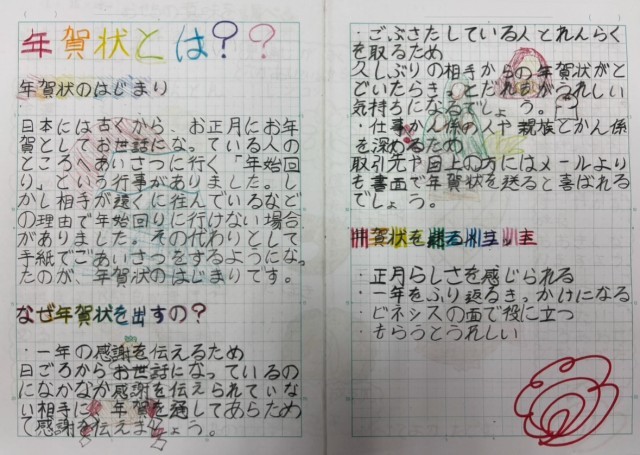 年賀状とは??
年賀状のはじまり
日本には古くから、お正月にお年
賀としてお世話になっている人の
ところへあいさつに行く「年始回
り」という行事がありました。し
かし相手が遠くに住んでいるなど
の理由で年始回りに行けない場合
がありました。その代わりとして
手紙でごあいさつをするようになっ
たのが、年賀状のはじまりです。
なぜ年賀状を出すの?
・一年の感謝を伝えるため
日ごろからお世話になっているの
になかなか感謝を伝えられていな
い相手に、年賀を通してあらためて
て感謝を伝えましょう。
・ごぶさたしている人とれんらく
を取るため
久しぶりの相手からの年賀状がと
どいたらきっとだれもがうれしい
気持ちになるでしょう。
・仕事かん係の人や親族とかん係
を深めるため
取引先や目上の方にはメールより
も書面で年賀状を送ると喜ばれる
でしょう。
年賀状を送るメリット
・正月らしさを感じられる
・一年をふり返るきっかけになる
・ビネシスの面で役に立つ
・もらうとうれしい